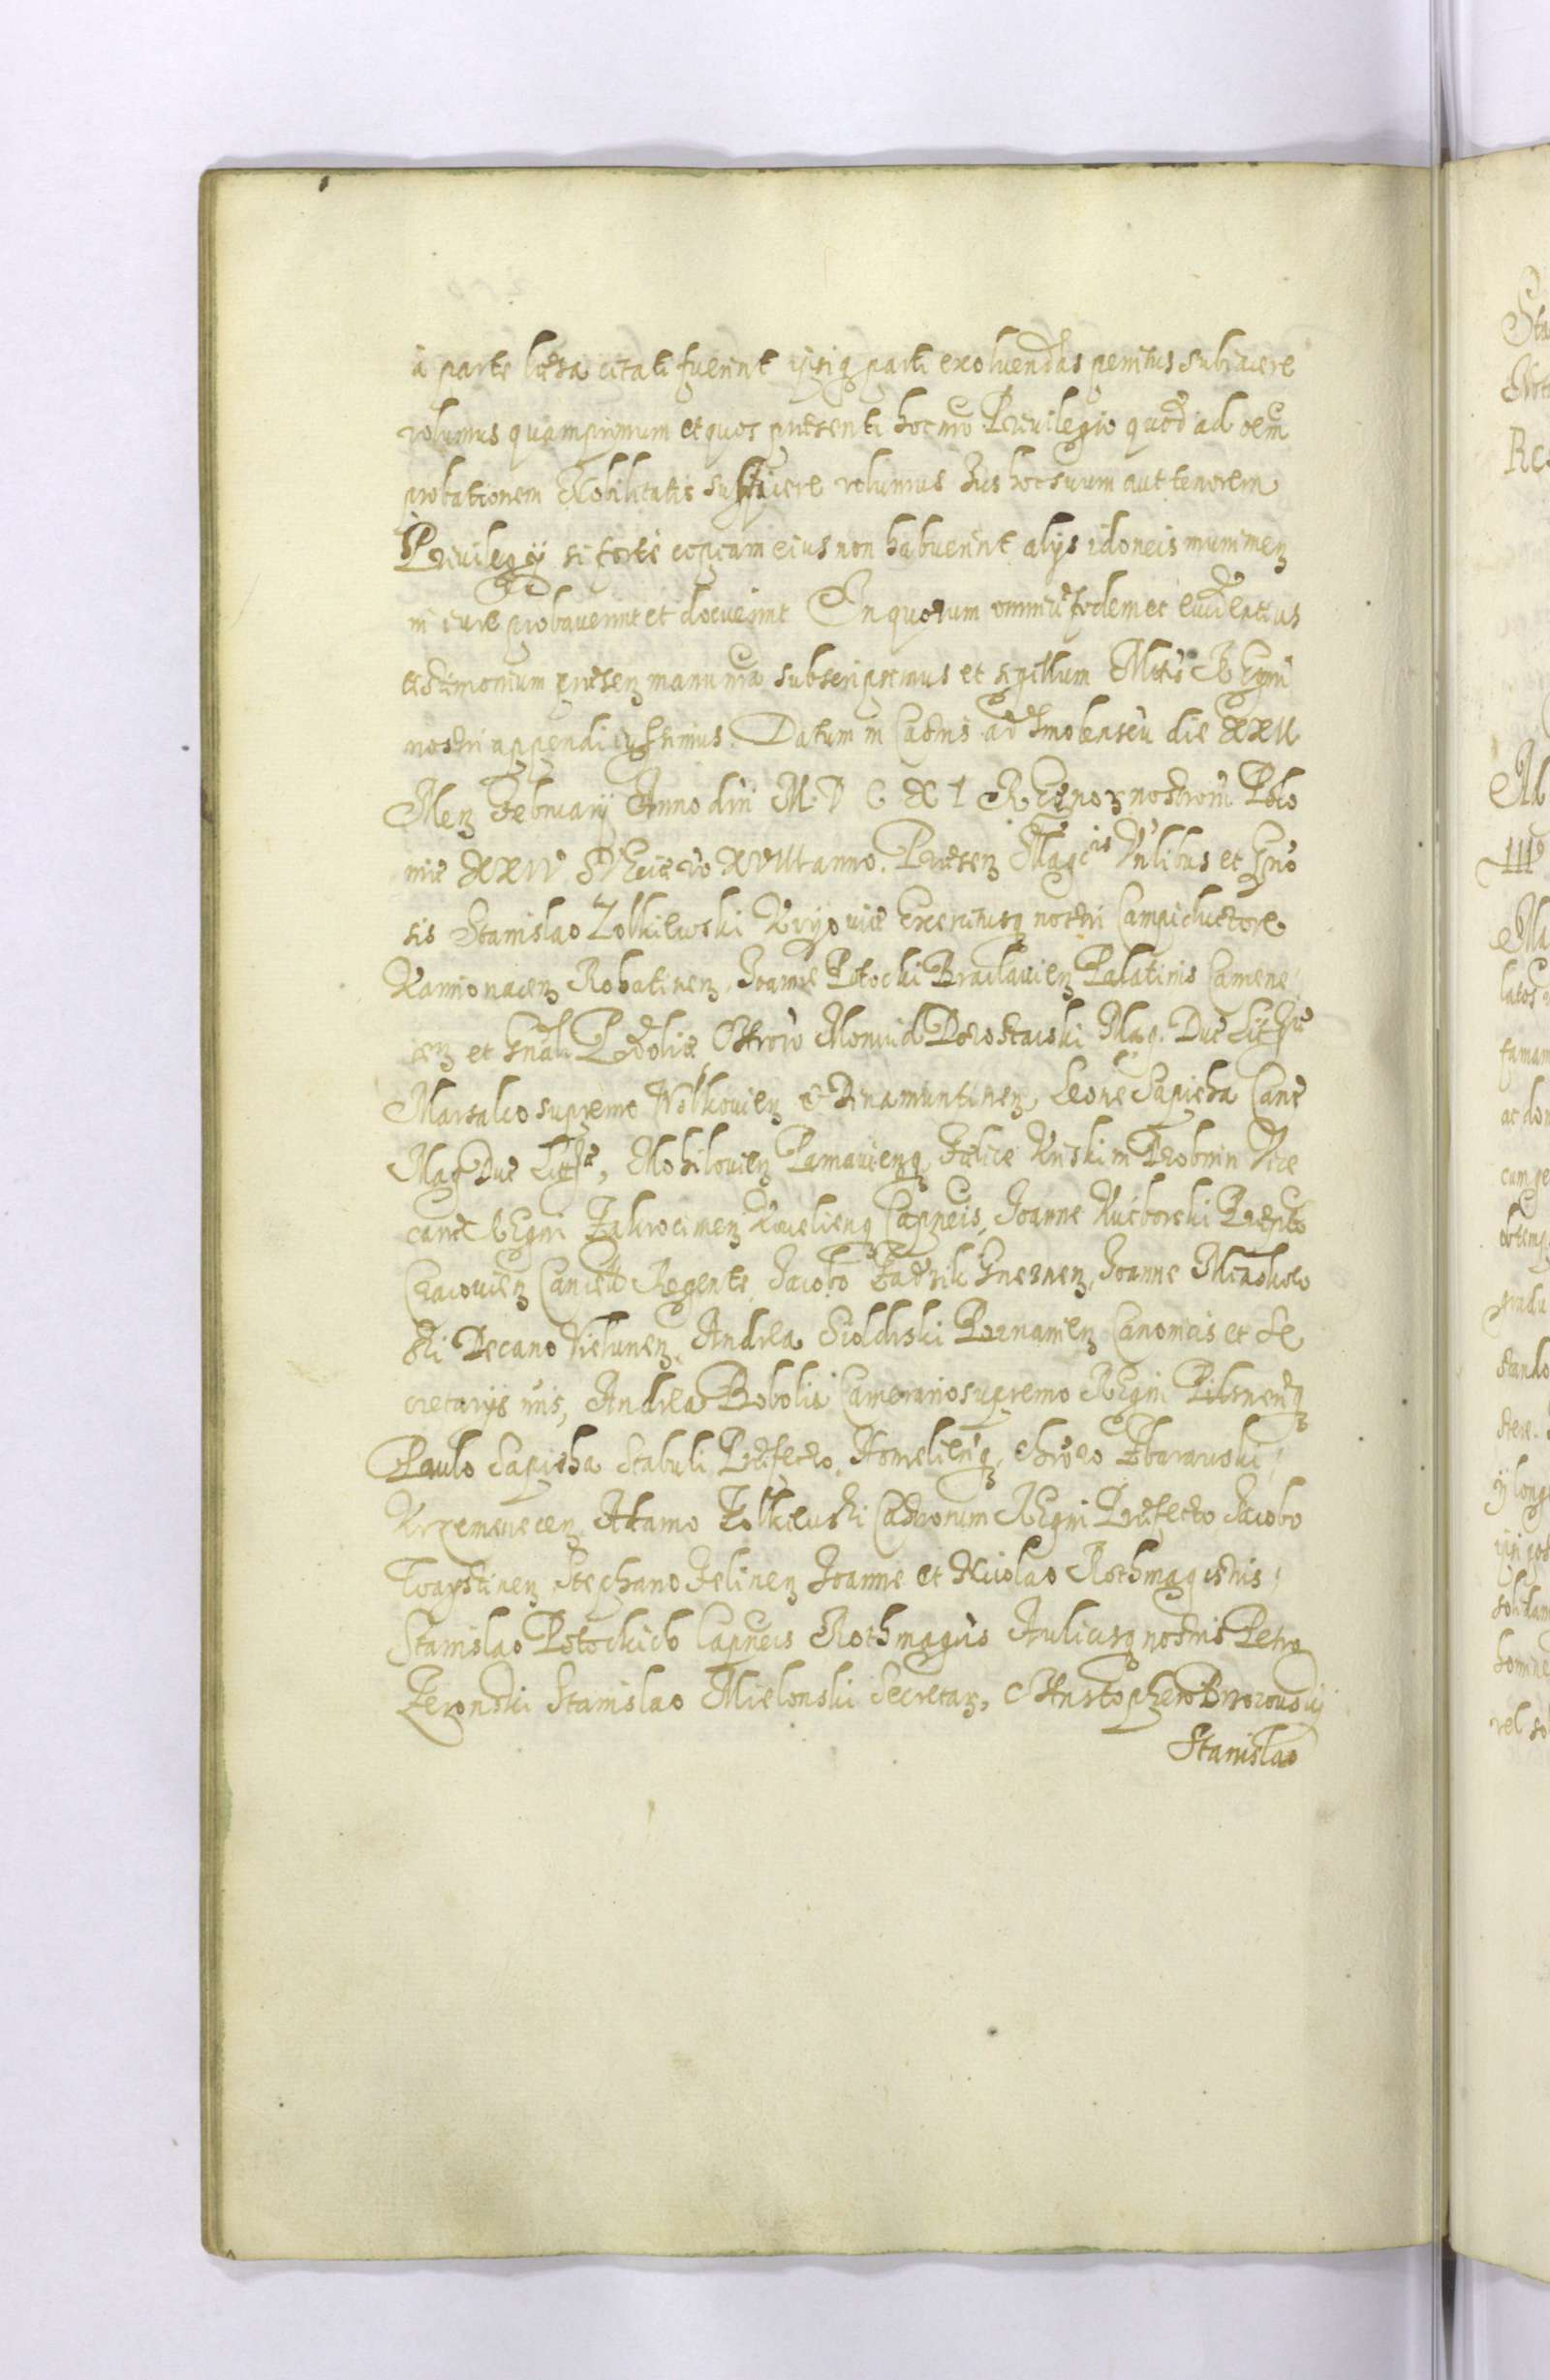 à parte læsa citati fuerint ipsiq parti exoluendas penitus subiacere
volumus quamprimum et quos præsenti hoc nro Priuilegio quod ad oem
probationem Nobilitatis sufficere volumus Ius hoc suum aut tenorem
Priuilegÿ si forte copiam eius non habuerint alijs idoneis munimen
in iure probauerint et docuerint In quorum omniu fidem et euidentius
testimonium præsen manu nra subscripsimus et sigillum Mtis REgni
nostri appendi iussimus. Datum in Castris ad Smolenscu die XXII
Men Februarÿ Anno dni M.D C XI REgnor nostroru Polo
niæ XXIV SVeciæ vo XVIII anno. Præsen Magcis Vnlibus et Gno
sis Stanislao Zolkiewski Kÿouiæ Exercitusq nostri Campiductore
Kamionacen Rohatinen, Joanne Potocki Braclauien Palatinis Camene
cen et Gnali Podoliæ, Chroro Monuid Dorostaiski Mag. Duc Litthæ
Marsalco supremo Wolkouien & Dinamuntinen, Leone Sapieha Canc
Mag Duc Litthæ, Mohilouien Pernauienq Fælice Kriski in Drobnin Vice
canc REgni Zakrocimen Kouelienq Capneis, Joanne Kucborski Præpto
Cracouien Cancell Regente, Jacobo Zadzik Gnesnen, Joanne
ski Decano Vielunen, Andrea Sioldrski Poznanien Canonicis et Se
cretarijs nris, Andrea Bobolia Camerario supremo REgni Pilsnenq
Paulo Sapieha Stabuli Præfecto Homelienq, Chroro Zbarawski
Krzemenecen, Adamo Zolkieuski Castrorum REgni Præfecto Jacobo
Stephano Felinen Joanne et Nicolao Rothmagistris,
Stanislao Potockich Capneis Rothmagris Aulicisq nostris Petro
Zeronski Stanislao Mielonski Secretar, Christophero Brzozouskÿ
Stanislao